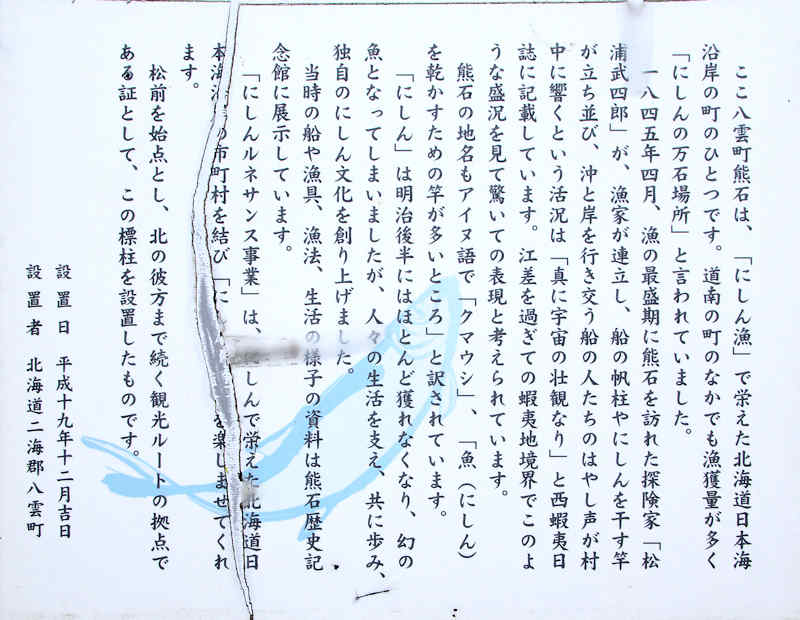 ここ八雲町熊石は、「にしん漁」で栄えた北海道日本海
沿岸の町のひとつです。道南の町のなかでも漁獲量が多く
「にしんの万石場所」と言われていました。
一八四五年四月、漁の最盛期に熊石を訪れた探険家「松
浦武四郎」が、漁家が連立し、船の帆柱やにしんを干す竿
が立ち並び、沖と岸を行き交う船の人たちのはやし声が村
中に響くという活況は「真に宇宙の壮観なり」と西蝦夷日
誌に記載しています。江差を過ぎての蝦夷地境界でこのよ
うな盛況を見て驚いての表現と考えられています。
熊石の地名もアイヌ語で「クマウシ」、「魚（にしん）
を乾かすための竿が多いところ」と訳されています。
「にしん」は明治後半にはほとんど獲れなくなり、幻の
魚となってしまいましたが、人々の生活を支え、共に歩み、
独自のにしん文化を創り上げました。
当時の船や漁具、漁法、生活の様子の資料は熊石歴史記
念館に展示しています。
「にしんルネサンス事業」は、にしんで栄えた北海道日
本海 の市町村を結び「に を楽しませてくれ
ます。
松前を始点とし、北の彼方まで続く観光ルートの拠点で
ある証として、この標柱を設置したものです。
設置日 平成十九年十二月吉日
設置者 北海道二海郡八雲町